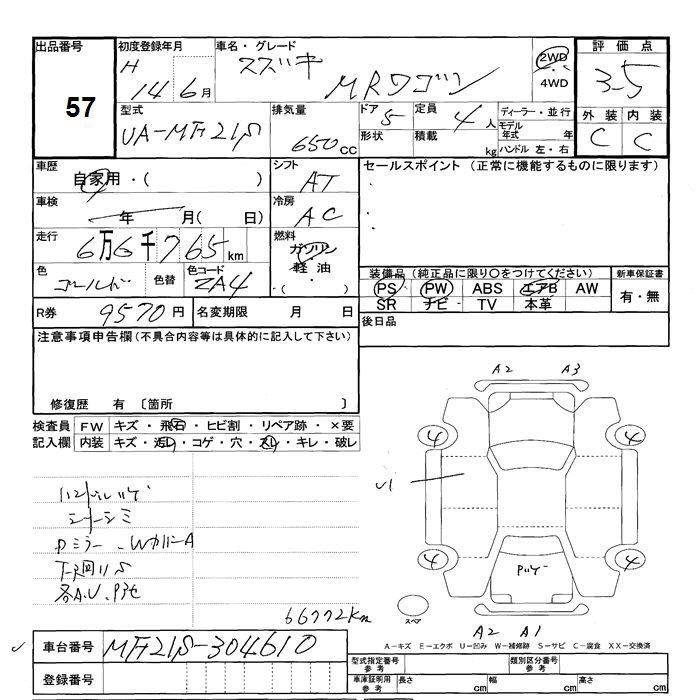 出品番号 初度登録年月 車名・グレード 評価点
57
H 14年6月 スズキ MRワゴン 2WD 4WD 3-5
型式 排気量 ドア 定員 ディーラー・並行 外装 内装
UA-MF21S 650cc 5 4人 モデル年式 年 C C
形状 積載 kg ハンドル 左・右
車歴 シフト セールスポイント (正常に機能するものに限ります)
自家用・( ) AT
車検 年 月( 日) 冷房 AC
走行 6万6千765km 燃料 ガソリン
軽油
・( )
色 ゴールド 色替 色コード ZA4
装備品 (純正品に限り○をつけてください) 新車保証書
PS PW ABS エアB AW 有・無
SR ナビ TV 本革
R券 9570円 名変期限 月 日 後日品
注意事項申告欄 (不具合内容等は具体的に記入して下さい)
修復歴 有 〔箇所 〕
検査員 FW キズ・飛石・ヒビ割・リペア跡・×要
記入欄 内装 キズ・汚れ・コゲ・穴・スレ・キレ・破レ
A2 A3
4 4
U1
ハンドルハゲ
シートシミ
Dミラー、WカバーA
下廻りS
各A.U.P有
4 4
Pハゲ
スペア
66772km
A2 A1
A-キズ E-エクボ U-凹み W-補修跡 S-サビ C-腐食 XX-交換済
車台番号 MF21S-304610
登録番号
型式指定番号 参考 類別区分番号 参考
車庫証明用 参考 長さ cm 幅 cm 高さ cm